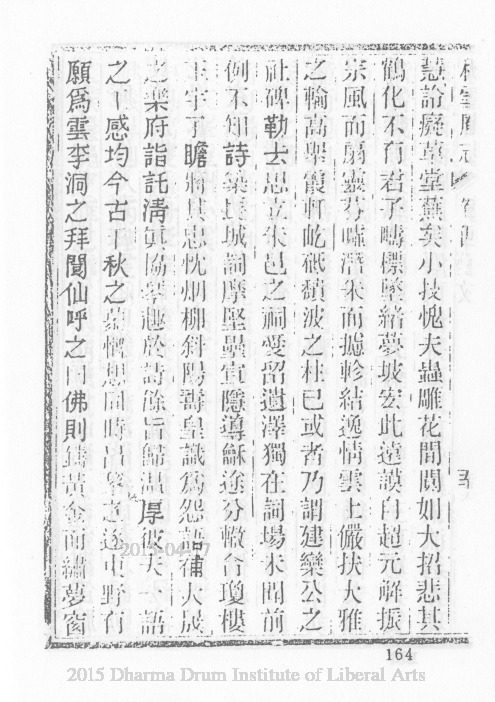 慧詥癡草堂蕪矣小技愧夫蟲雕花閒闃如大招悲其
鶴化不有君子疇標墜緒夢坡宏此遠謨自超元解振
宗風而扇靈芬嘯潛采而摅軫結逸情雲上儼扶大雅
之輪高舉霞軒屹砥頹波之柱已或者乃謂建欒公之
社碑勒去思立朱邑之祠愛留遺澤獨在詞場未聞前
例不知詩築長城詞摩堅壘宣隱導龢途分轍合瓊樓
玉宇子瞻將其忠忱烟柳斜陽壽皇識為怨語補大晟
之樂府詣託清眞協琴趣於詩餘旨歸温厚彼夫一語
之工感均今古千秋之慕憎想同時呂 之遂東野有
願爲雲李洞之拜閬仙呼之曰佛則鑄黃金而繡夢窗
164
2015 Dharma Drum Institute of Liberal Arts